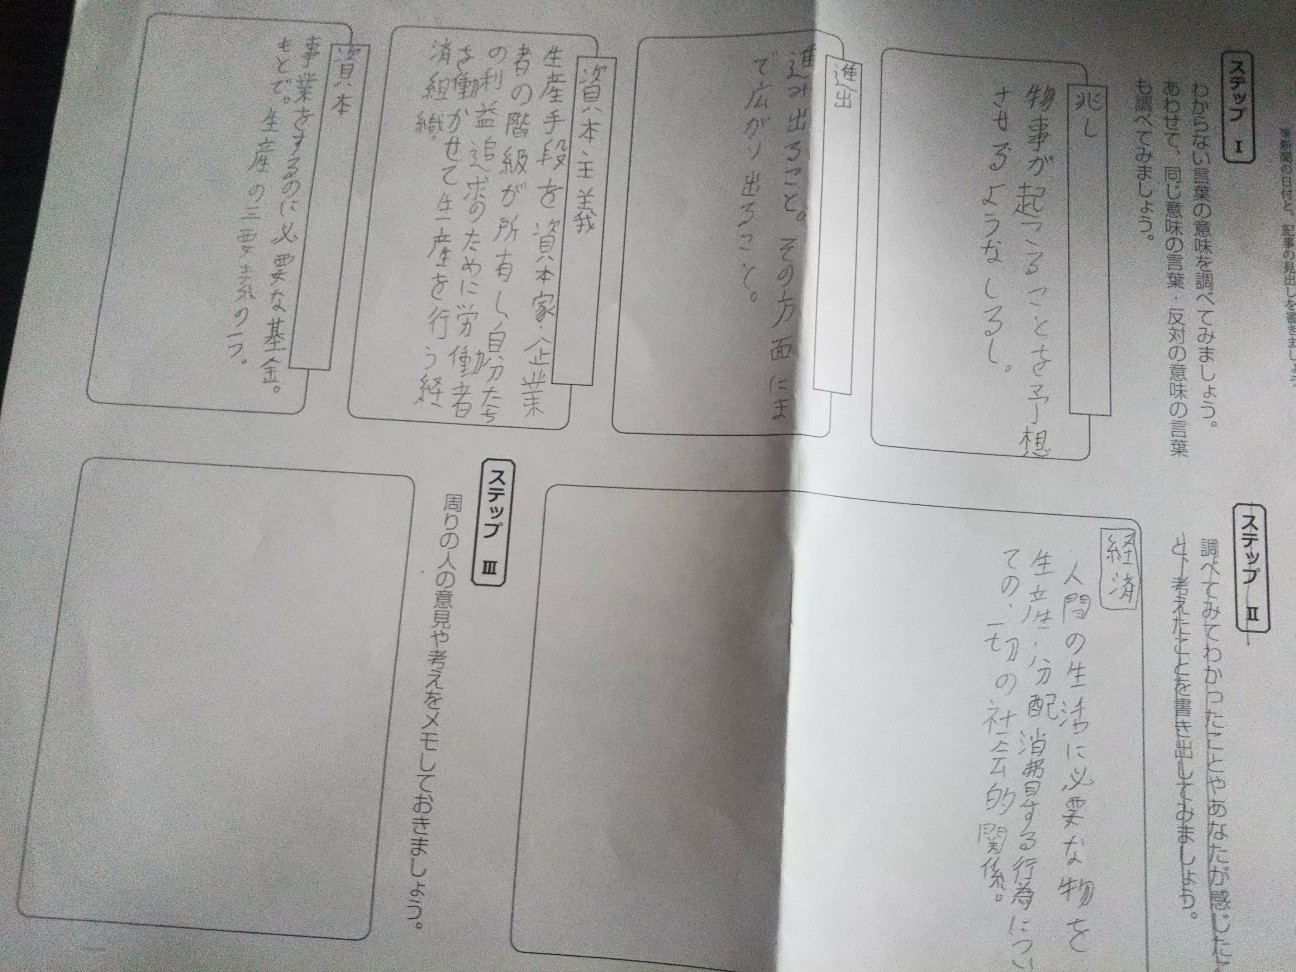 ステップ Ⅰ
わからない言葉の意味を調べてみましょう。
あわせて、同じ意味の言葉・反対の意味の言葉
も調べてみましょう。
兆し
物事が起こることを予想
させるようなしるし。
進出
進み出ること。その方面にま
で広がり出ること。
資本主義
生産手段を資本家・企業
者の階級が所有し、自分たち
の利益追求のために労働者
を働かせて生産を行う経
済組織。
資本
事業をするのに必要な基金。
もとで。生産の三要素の一つ。
ステップ Ⅱ
調べてみてわかったことやあなたが感じたこ
と、考えたことを書き出してみましょう。
経済
人間の生活に必要な物を
生産・分配消費する行為につい
ての、一切の社会的関係。
ステップ Ⅲ
周りの人の意見や考えをメモしておきましょう。